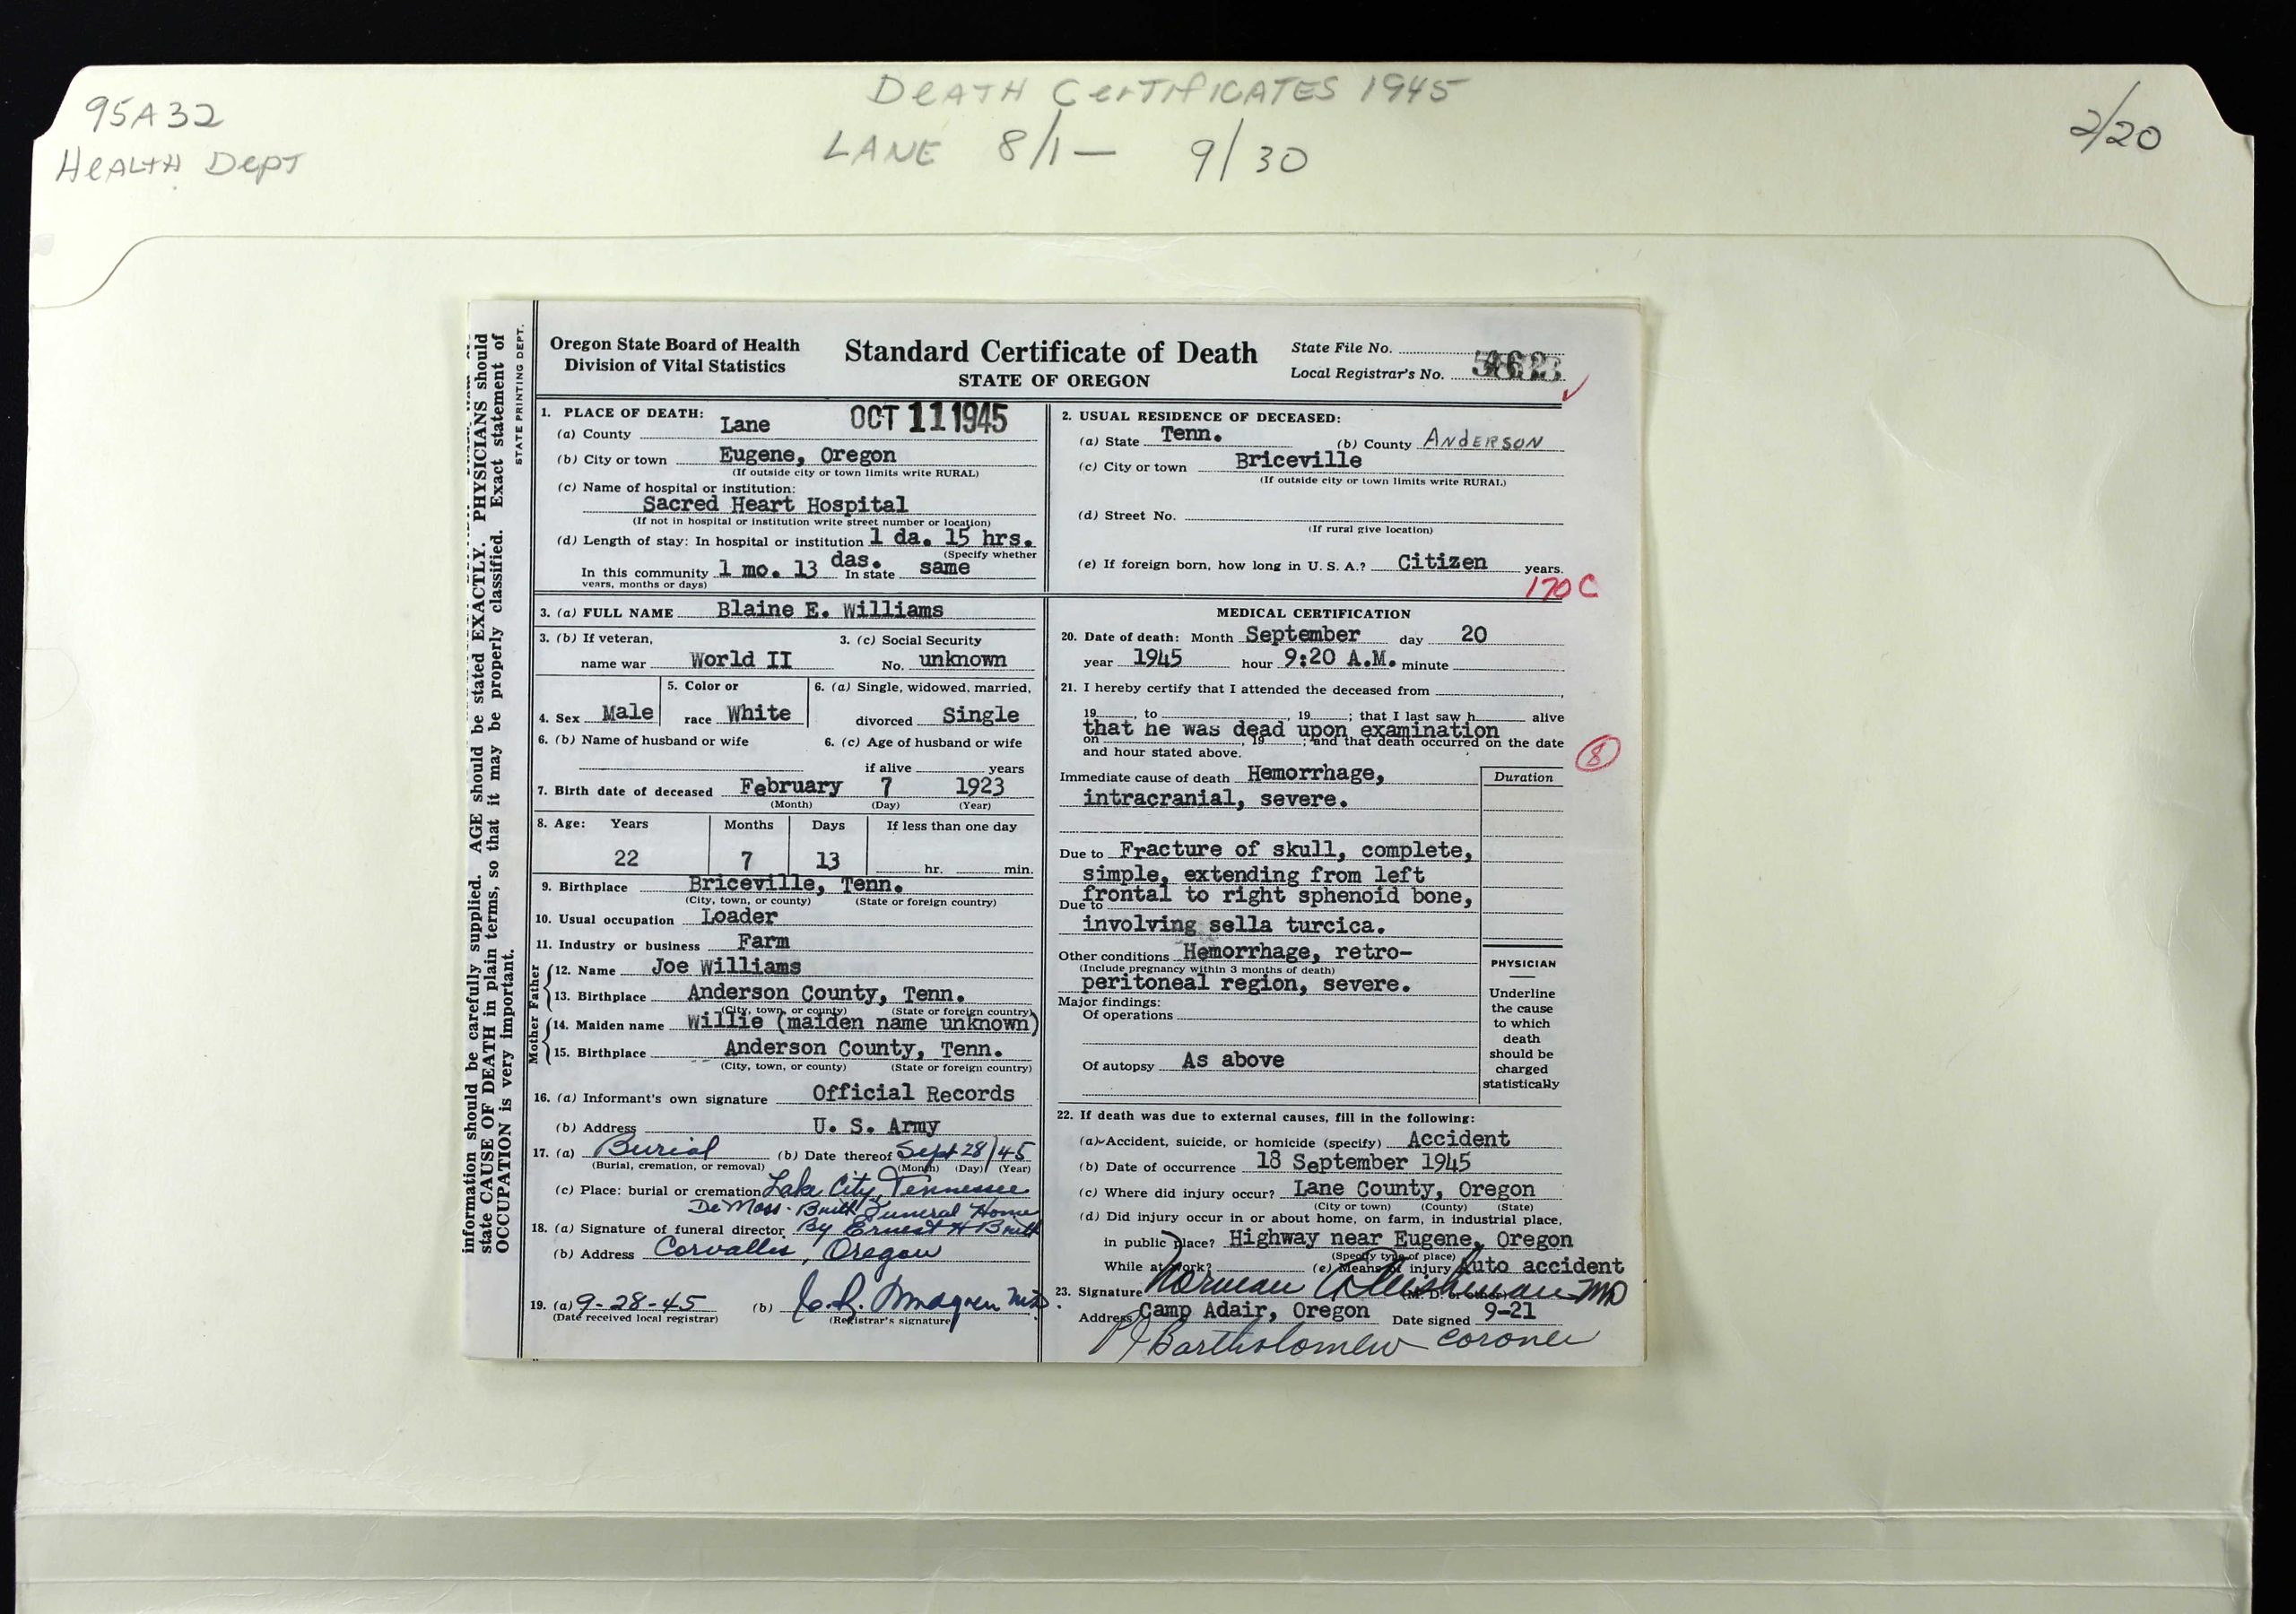 95A32
Health Dept
Death Certificates 1945
LANE 8/1 — 9/30
2/20
information should be carefully supplied. AGE should be stated EXACTLY. PHYSICIANS should
state CAUSE OF DEATH in plain terms, so that it may be properly classified. Exact statement of
OCCUPATION is very important.
STATE PRINTING DEPT.
Oregon State Board of Health
Division of Vital Statistics
Standard Certificate of Death
STATE OF OREGON
State File No.
Local Registrar's No.
1. PLACE OF DEATH: OCT 11 1945
(a) County Lane
(b) City or town Eugene, Oregon
(If outside city or town limits write RURAL)
(c) Name of hospital or institution:
Sacred Heart Hospital
(If not in hospital or institution write street number or location)
(d) Length of stay: In hospital or institution 1 da. 15 hrs.
(Specify whether
In this community 1 mo. 13 das. In state same
years, months or days)
2. USUAL RESIDENCE OF DECEASED:
(a) State Tenn. (b) County ANDERSON
(c) City or town Briceville
(If outside city or town limits write RURAL)
(d) Street No.
(If rural give location)
(e) If foreign born, how long in U. S. A.? Citizen years.
170 C
3. (a) FULL NAME Blaine E. Williams
3. (b) If veteran, 3. (c) Social Security
name war World II No. unknown
4. Sex Male
5. Color or
race White
6. (a) Single, widowed, married,
divorced Single
6. (b) Name of husband or wife 6. (c) Age of husband or wife
if alive years
7. Birth date of deceased February 7 1923
(Month) (Day) (Year)
8. Age: Years Months Days If less than one day
22 7 13 hr. min.
9. Birthplace Briceville, Tenn.
(City, town, or county) (State or foreign country)
10. Usual occupation Loader
11. Industry or business Farm
Father
12. Name Joe Williams
13. Birthplace Anderson County, Tenn.
(City, town, or county) (State or foreign country)
Mother
14. Maiden name Willie (maiden name unknown)
15. Birthplace Anderson County, Tenn.
(City, town, or county) (State or foreign country)
16. (a) Informant's own signature Official Records
(b) Address U. S. Army
17. (a) Burial (b) Date thereof Sept 28/45
(Burial, cremation, or removal) (Month) (Day) (Year)
(c) Place: burial or cremation Lake City, Tennessee
De Moss- Funeral Home
18. (a) Signature of funeral director By Ernest H
(b) Address Corvallis, Oregon
19. (a) 9-28-45 (b)
(Date received local registrar) (Registrar's signature)
MEDICAL CERTIFICATION
20. Date of death: Month September day 20
year 1945 hour 9:20 A.M. minute
21. I hereby certify that I attended the deceased from ,
19 , to , 19 ; that I last saw h alive
that he was dead upon examination
on , 19 ; and that death occurred on the date
and hour stated above.
8
Immediate cause of death Hemorrhage,
intracranial, severe.
Duration
Due to Fracture of skull, complete,
simple, extending from left
frontal to right sphenoid bone,
Due to
involving sella turcica.
Other conditions Hemorrhage, retro-
(Include pregnancy within 3 months of death)
peritoneal region, severe.
Major findings:
Of operations
Of autopsy As above
PHYSICIAN
Underline
the cause
to which
death
should be
charged
statistically
22. If death was due to external causes, fill in the following:
(a) Accident, suicide, or homicide (specify) Accident
(b) Date of occurrence 18 September 1945
(c) Where did injury occur? Lane County, Oregon
(City or town) (County) (State)
(d) Did injury occur in or about home, on farm, in industrial place,
in public place? Highway near Eugene, Oregon
(Specify type of place)
While at work? (e) Means of injury Auto accident
23. Signature Norman MD
(M. D. or other)
Address Camp Adair, Oregon Date signed 9-21
Bartholomew Coroner